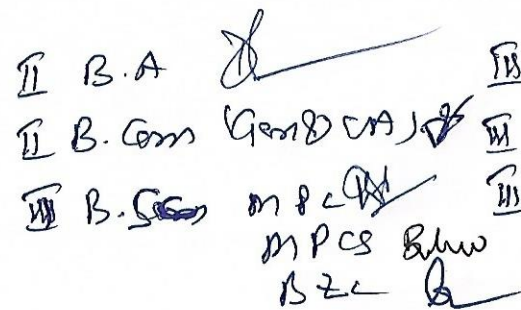 II B.A III
II B.Com (Gen & CA) III
III B.Sc MPC III
MPCS
BZC